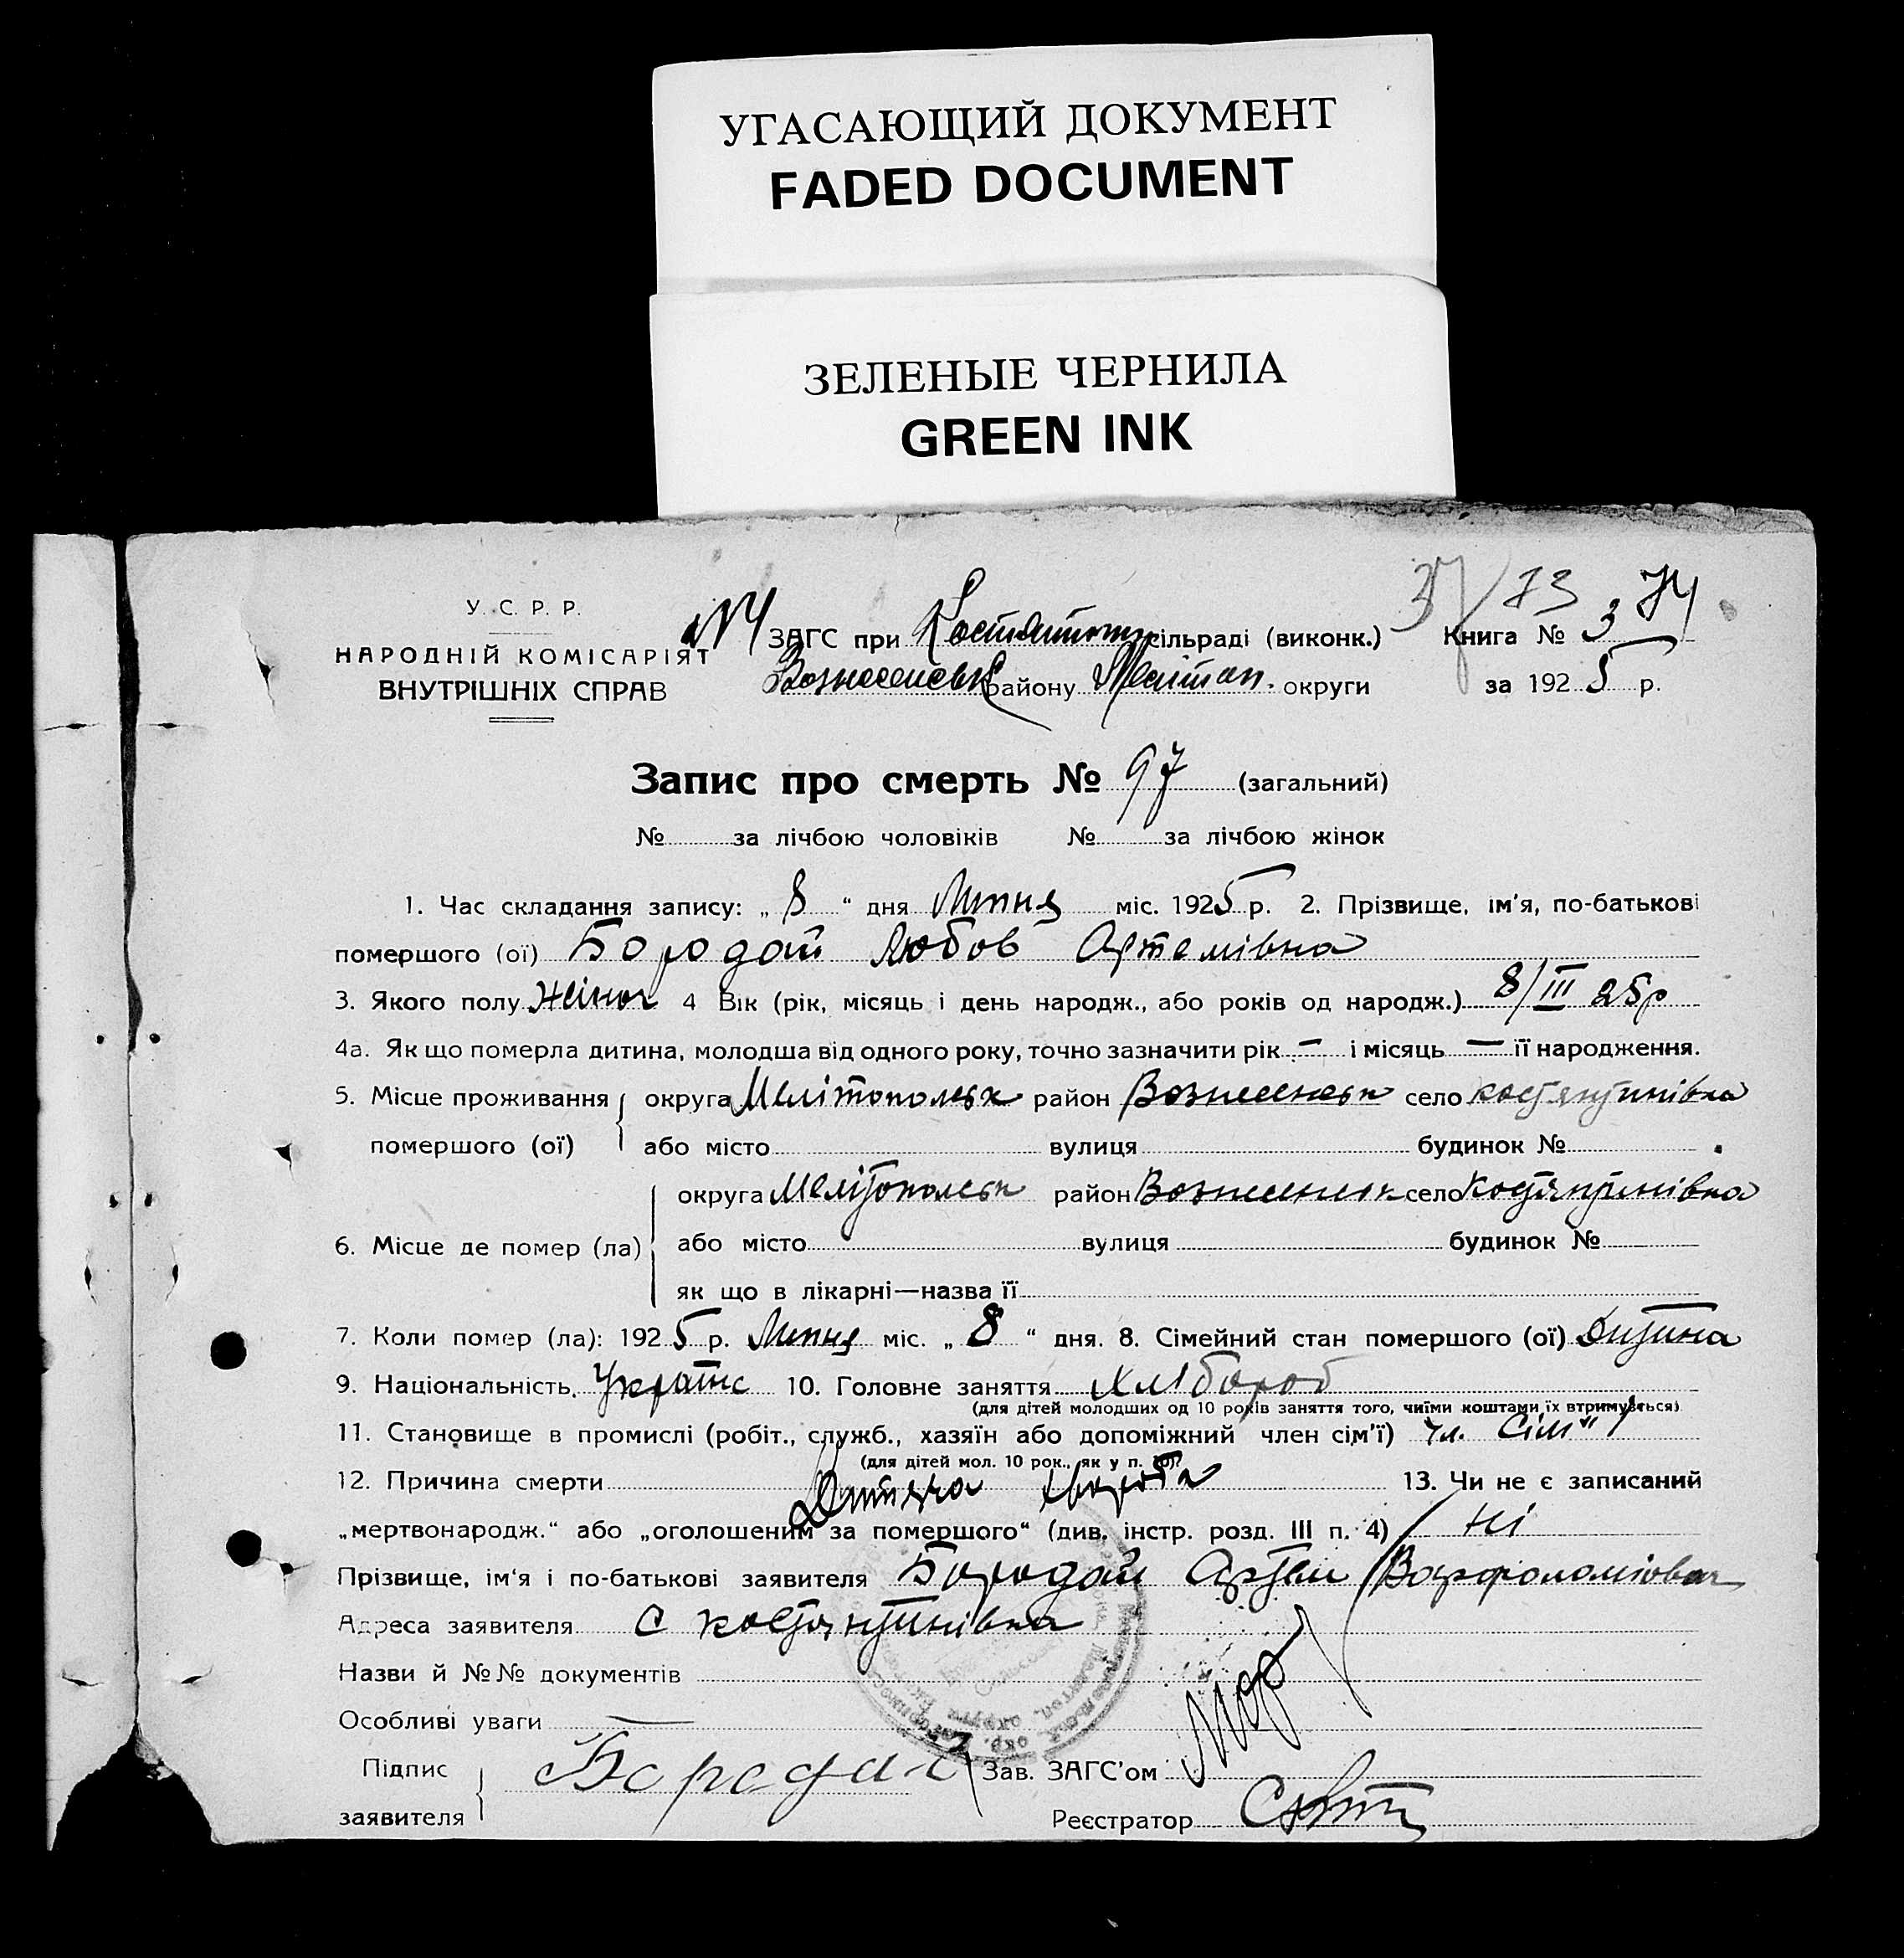 УГАСАЮЩИЙ ДОКУМЕНТ
FADED DOCUMENT
ЗЕЛЕНЫЕ ЧЕРНИЛА
GREEN INK
37/73 74
У. С. Р. Р.
НАРОДНІЙ КОМІСАРІЯТ
ВНУТРІШНІХ СПРАВ
ЗАГС при Костянтин сільраді (виконк.) Книга № 3
Вознесенськ району Мелітоп. округи за 1925 р.
Запис про смерть № 97 (загальний)
№ за лічбою чоловіків № за лічбою жінок
1. Час складання запису: „ 8 “ дня Липня міс. 1925 р. 2. Прізвище, ім'я, по-батькові
помершого (ої) Бородай Любов Артемівна
3. Якого полу Жіноч 4 Вік (рік, місяць і день народж., або років од народж.) 8/III 25р
4а. Як що померла дитина, молодша від одного року, точно зазначити рік — і місяць — її народження.
5. Місце проживання округа Мелітопольськ район Вознесенськ село Костянтинівка
помершого (ої) або місто вулиця будинок №
округа Мелітопольськ район Вознесенськ село Костянтинівка
6. Місце де помер (ла) або місто вулиця будинок №
як що в лікарні—назва її
7. Коли помер (ла): 1925 р. Липня міс. „ 8 “ дня. 8. Сімейний стан помершого (ої) Дитина
9. Національність Україн 10. Головне заняття Хлібороб
(для дітей молодших од 10 років заняття того, чиїми коштами їх втримується)
11. Становище в промислі (робіт., служб., хазяїн або допоміжний член сім'ї) чл. сім'ї
(для дітей мол. 10 рок., як у п. 10)
12. Причина смерти Дитяча хвороба 13. Чи не є записаний
„мертвонародж.“ або „оголошеним за помершого“ (див. інстр. розд. III п. 4) Ні
Прізвище, ім'я і по-батькові заявителя Бородай Артем Варфоломіович
Адреса заявителя С Костянтинівка
Назви й №№ документів
Особливі уваги —
Підпис Бородай Зав. ЗАГС'ом
заявителя Реєстратор